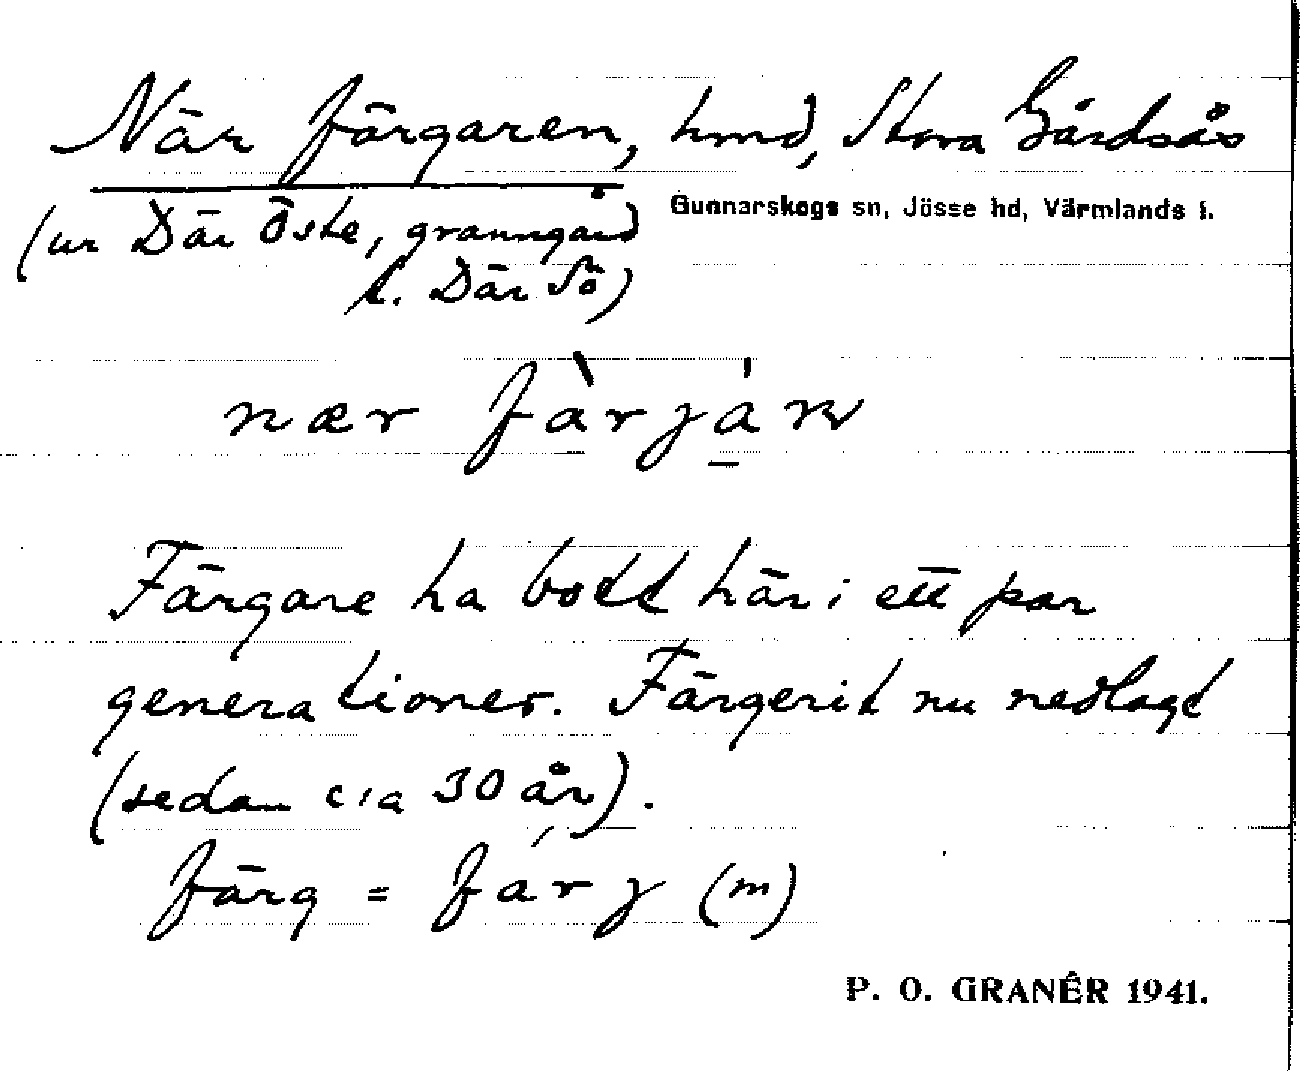 När färgaren, hmd, Stora Gårdsås
Gunnarskogs sn, Jösse hd, Värmlands l.
(ur Där Öste, granngård
t. Där Sö)
nær fàrjá̱rv
Färgare ha bott här i ett par
generationer. Färgerit nu nedlagt
(sedan c:a 30 år).
färg = fárj (m)
P. O. GRANÉR 1941.